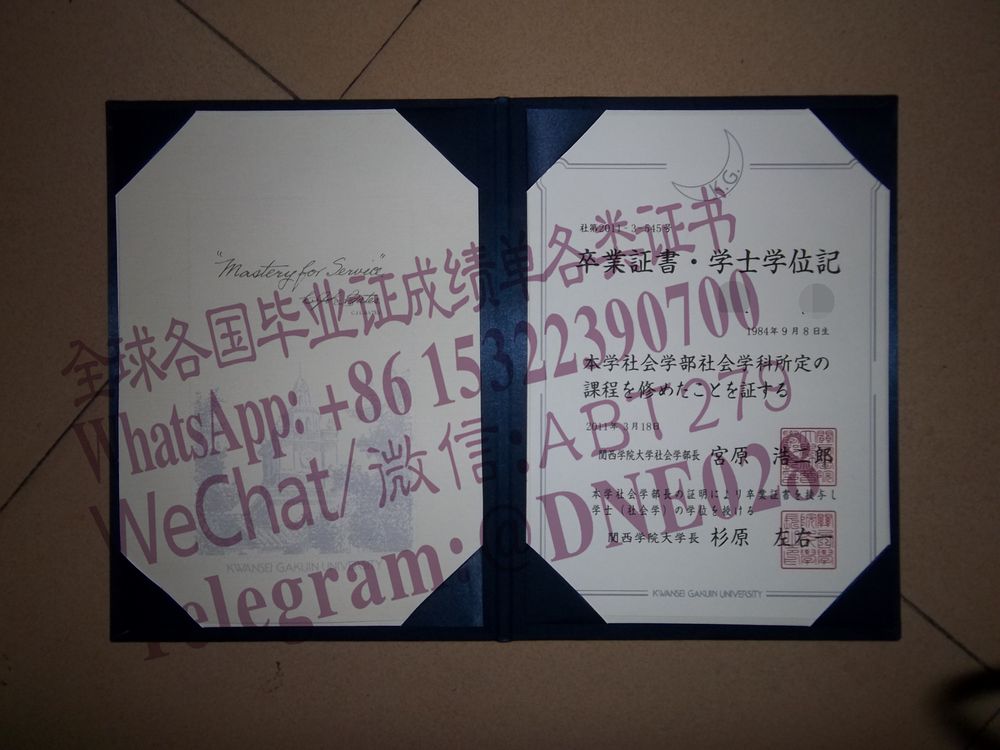 "Mastery for Service"
KWANSEI GAKUIN UNIVERSITY
K.G.
社第2011-3-545号
卒業証書・学士学位記
1984年9月8日生
本学社会学部社会学科所定の
課程を修めたことを証する
2011年3月18日
関西学院大学社会学部長 宮原 浩二郎
本学社会学部長の証明により卒業証書を授与し
学士(社会学)の学位を授ける
関西学院大学長 杉原 左右一
KWANSEI GAKUIN UNIVERSITY
全球各国毕业证成绩单各类证书
WhatsApp: +86 15322390700
WeChat/微信:ABT279
Telegram:@DNE028